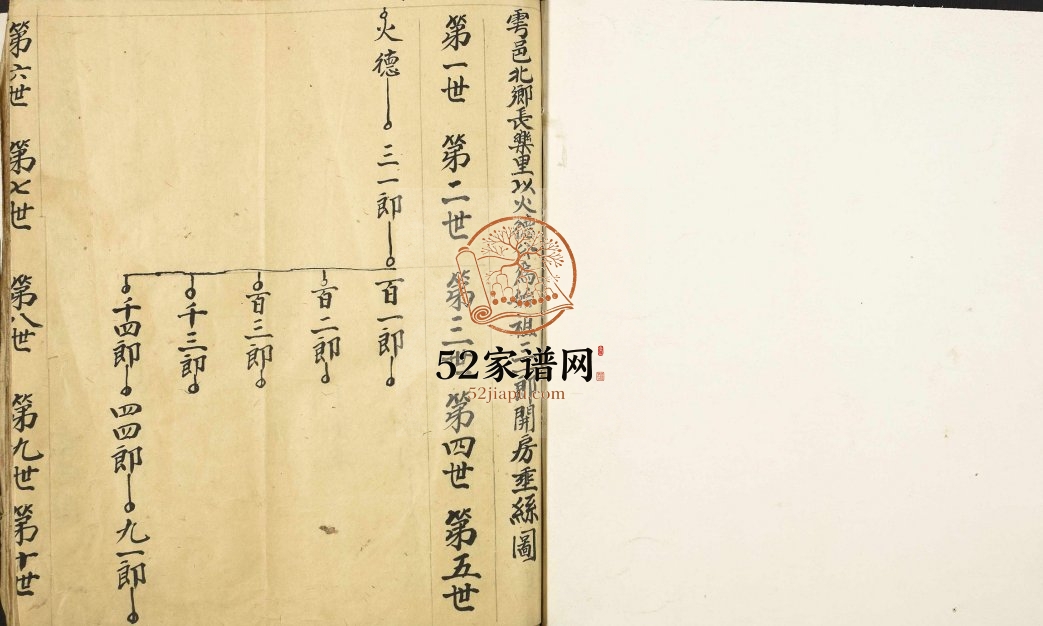 雲邑北鄉長樂里以火德公為始祖三一郎開房垂絲圖
第一世 第二世 第三世 第四世 第五世
火德 三一郎 百一郎
百二郎
百三郎
千三郎
千四郎 四四郎 九一郎
第六世 第七世 第八世 第九世 第十世
52家谱网
52jiapu.com